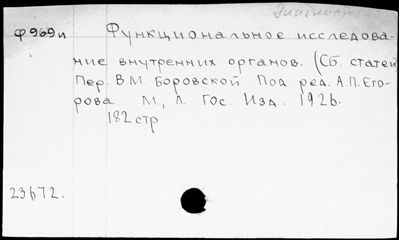 Ф 969 и
Функциональное исследова-
ние внутренних органов. (Сб. статей
Пер. В.М. Боровской Под ред. А.П. Его-
рова М., Л. Гос. Изд. 1926.
182 стр
23672.